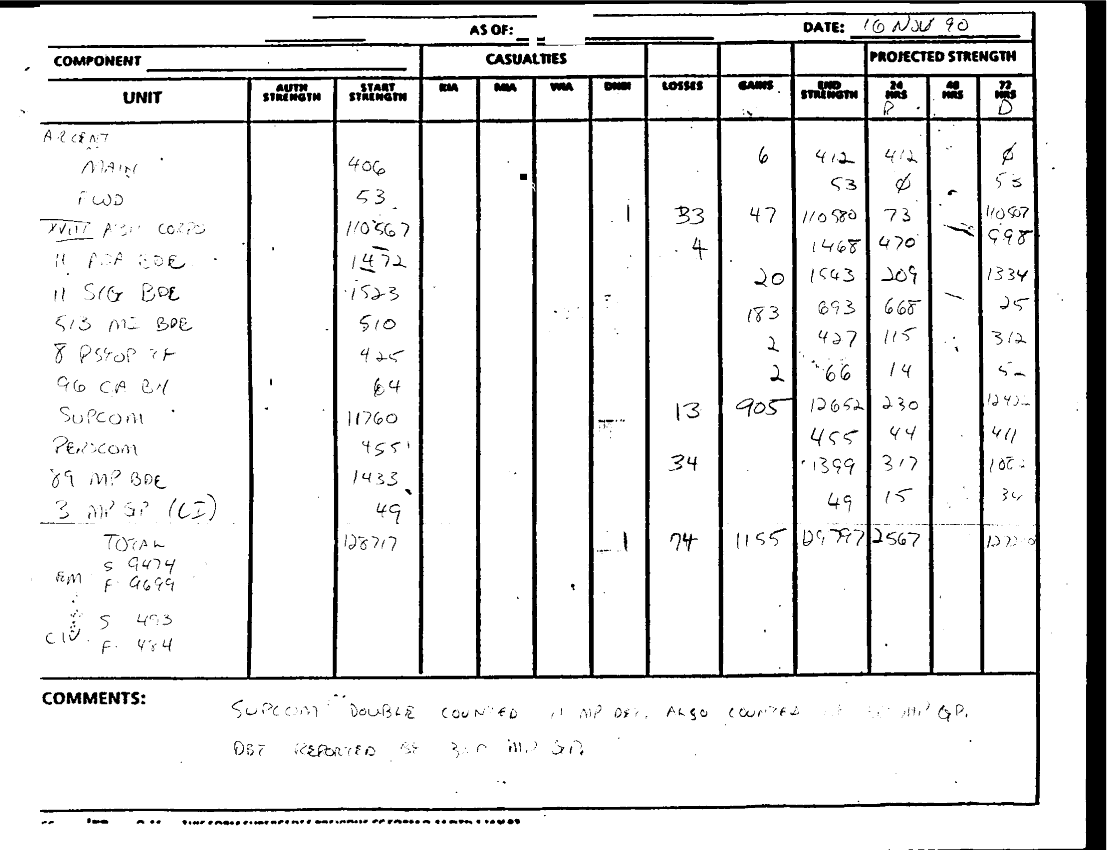 AS OF: DATE: 16 NOV 90
COMPONENT CASUALTIES PROJECTED STRENGTH
UNIT AUTH STRENGTH START STRENGTH KIA MIA WIA DNBI LOSSES GAINS END STRENGTH 24 HRS 48 HRS 72 HRS
R D
ARCENT
MAIN 406 6 412 412 ∅
FWD 53 53 ∅ 53
XVIII ABN CORPS 110567 1 33 47 110580 73 110507
11 ADA BDE 1472 4 1468 470 998
11 SIG BDE 1523 20 1543 209 1334
513 MI BDE 510 183 693 668 25
8 PSYOP TF 425 2 427 115 312
96 CA BN 64 2 66 14 52
SUPCOM 11760 13 905 12652 230 12422
PERSCOM 455 455 44 411
89 MP BDE 1433 34 1399 317 1082
3 MP GP (CI) 49 49 15 34
TOTAL 128717 1 74 1155 129797 2567
S 9474
EM F 9699
S 493
CIV F 484
COMMENTS:
SUPCOM DOUBLE COUNTED MP DET. ALSO COUNTED MP GP.
DET REPORTED MP